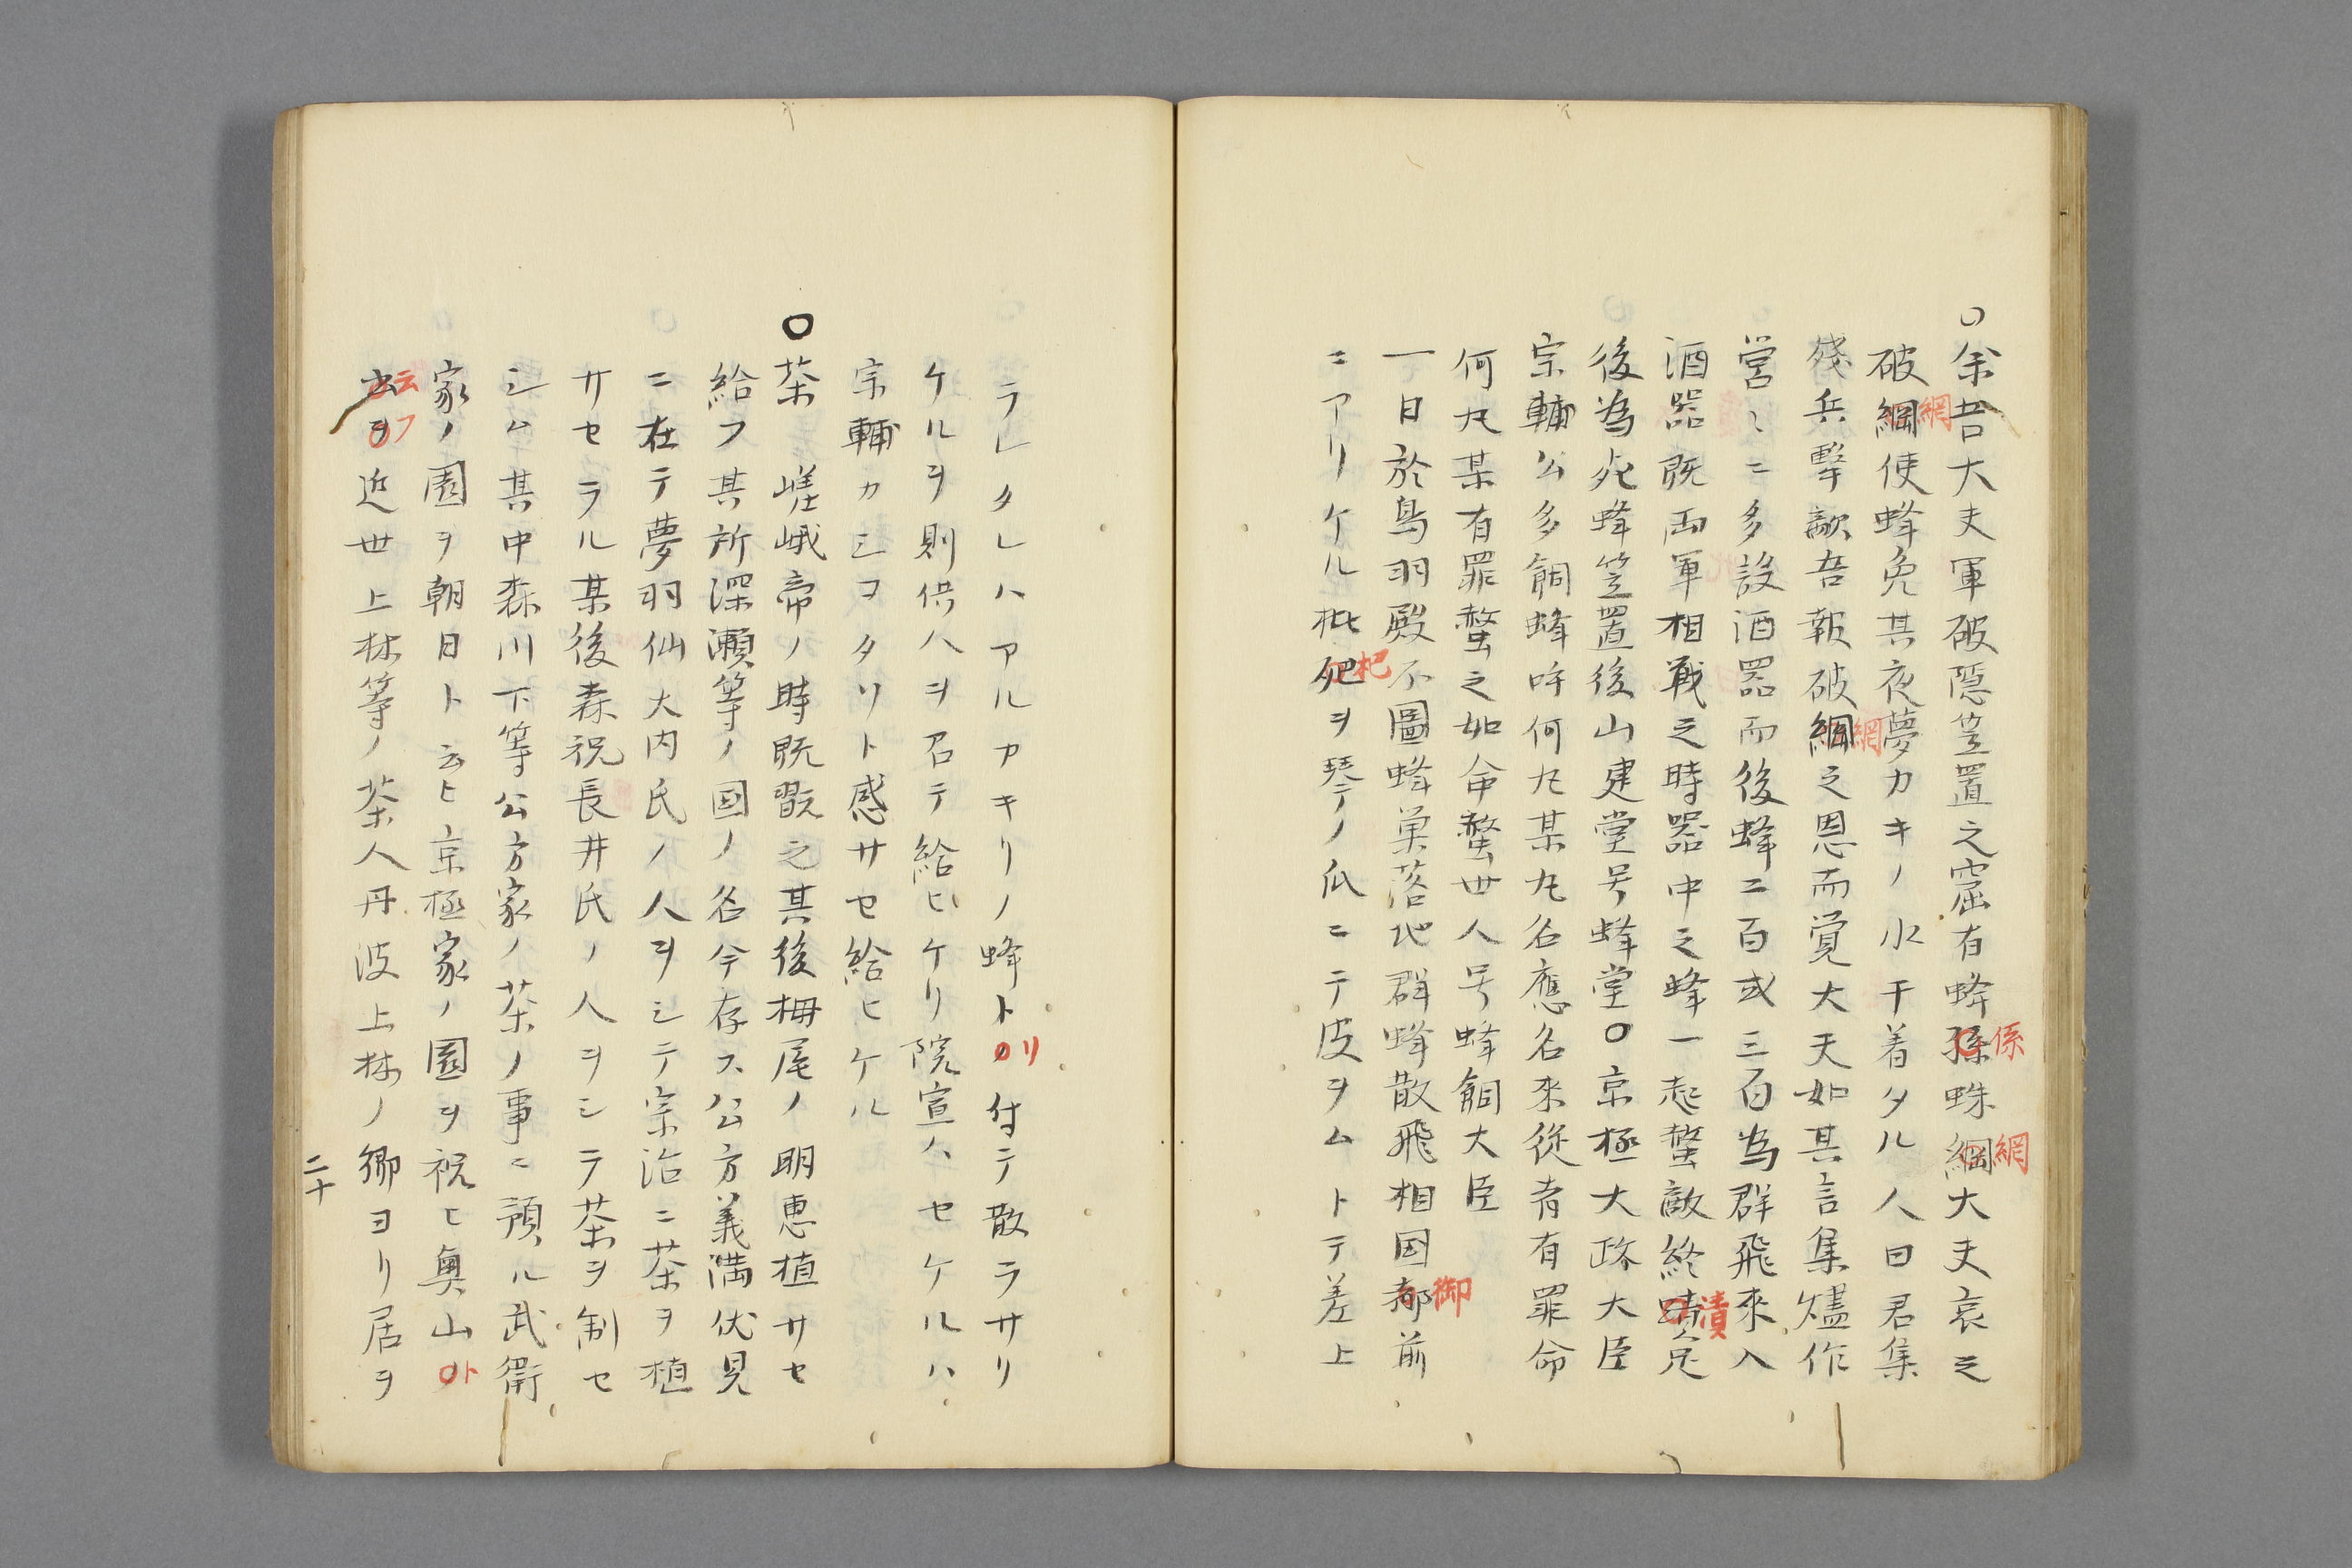 〇余吾大夫軍破隠笠置之窟有蜂孫蛛綱大夫哀之
係
網
破綱使蜂免其夜夢カキノ水干着タル人曰君集
網
残兵撃敵吾報破綱之恩而覚大夫如其言集燼作
網
営〻ニ多設酒器而後蜂二百或三百為群飛来入
酒器既両軍相戦之時器中之蜂一起螫敵終晴免
潰
後為死蜂笠置後山建堂号蜂堂〇京極大政大臣
宗輔公多飼蜂呼何丸某丸名應名来従者有罪命
何丸某有罪螫之如命螫世人号蜂飼大臣
一日於鳥羽殿不圖蜂巣落地群蜂散飛相国都前
御
ニアリケル枇𣏕ヲ琴ノ爪ニテ皮ヲムトテ差上
杷
ラレタレハアルカキリノ蜂トノ付テ散ラサリ
リ
ケルヲ則供人ヲ召テ給ヒケリ院宣ハセケルハ
宗輔カシコタリト感サセ給ヒケル
〇茶 嵯峨帝ノ時既翫之其後栂尾ノ明恵植サセ
給フ其所深瀬等ノ園ノ名今存ス公方義満伏見
ニ在テ夢羽仙大内氏ノ人ヲシテ宗治ニ茶ヲ植
サセラル其後森祝長井氏ノ人ヲシテ茶ヲ制セ
シム其中森川下等公方家ノ茶ノ事ニ預ル武衛
家ノ園ヲ朝日ト云ヒ京極家ノ園ヲ祝ヒ奥山ノ
ト
去ヲ近世上林等ノ茶人丹波上林ノ郷ヨリ居ヲ
云フ
二十